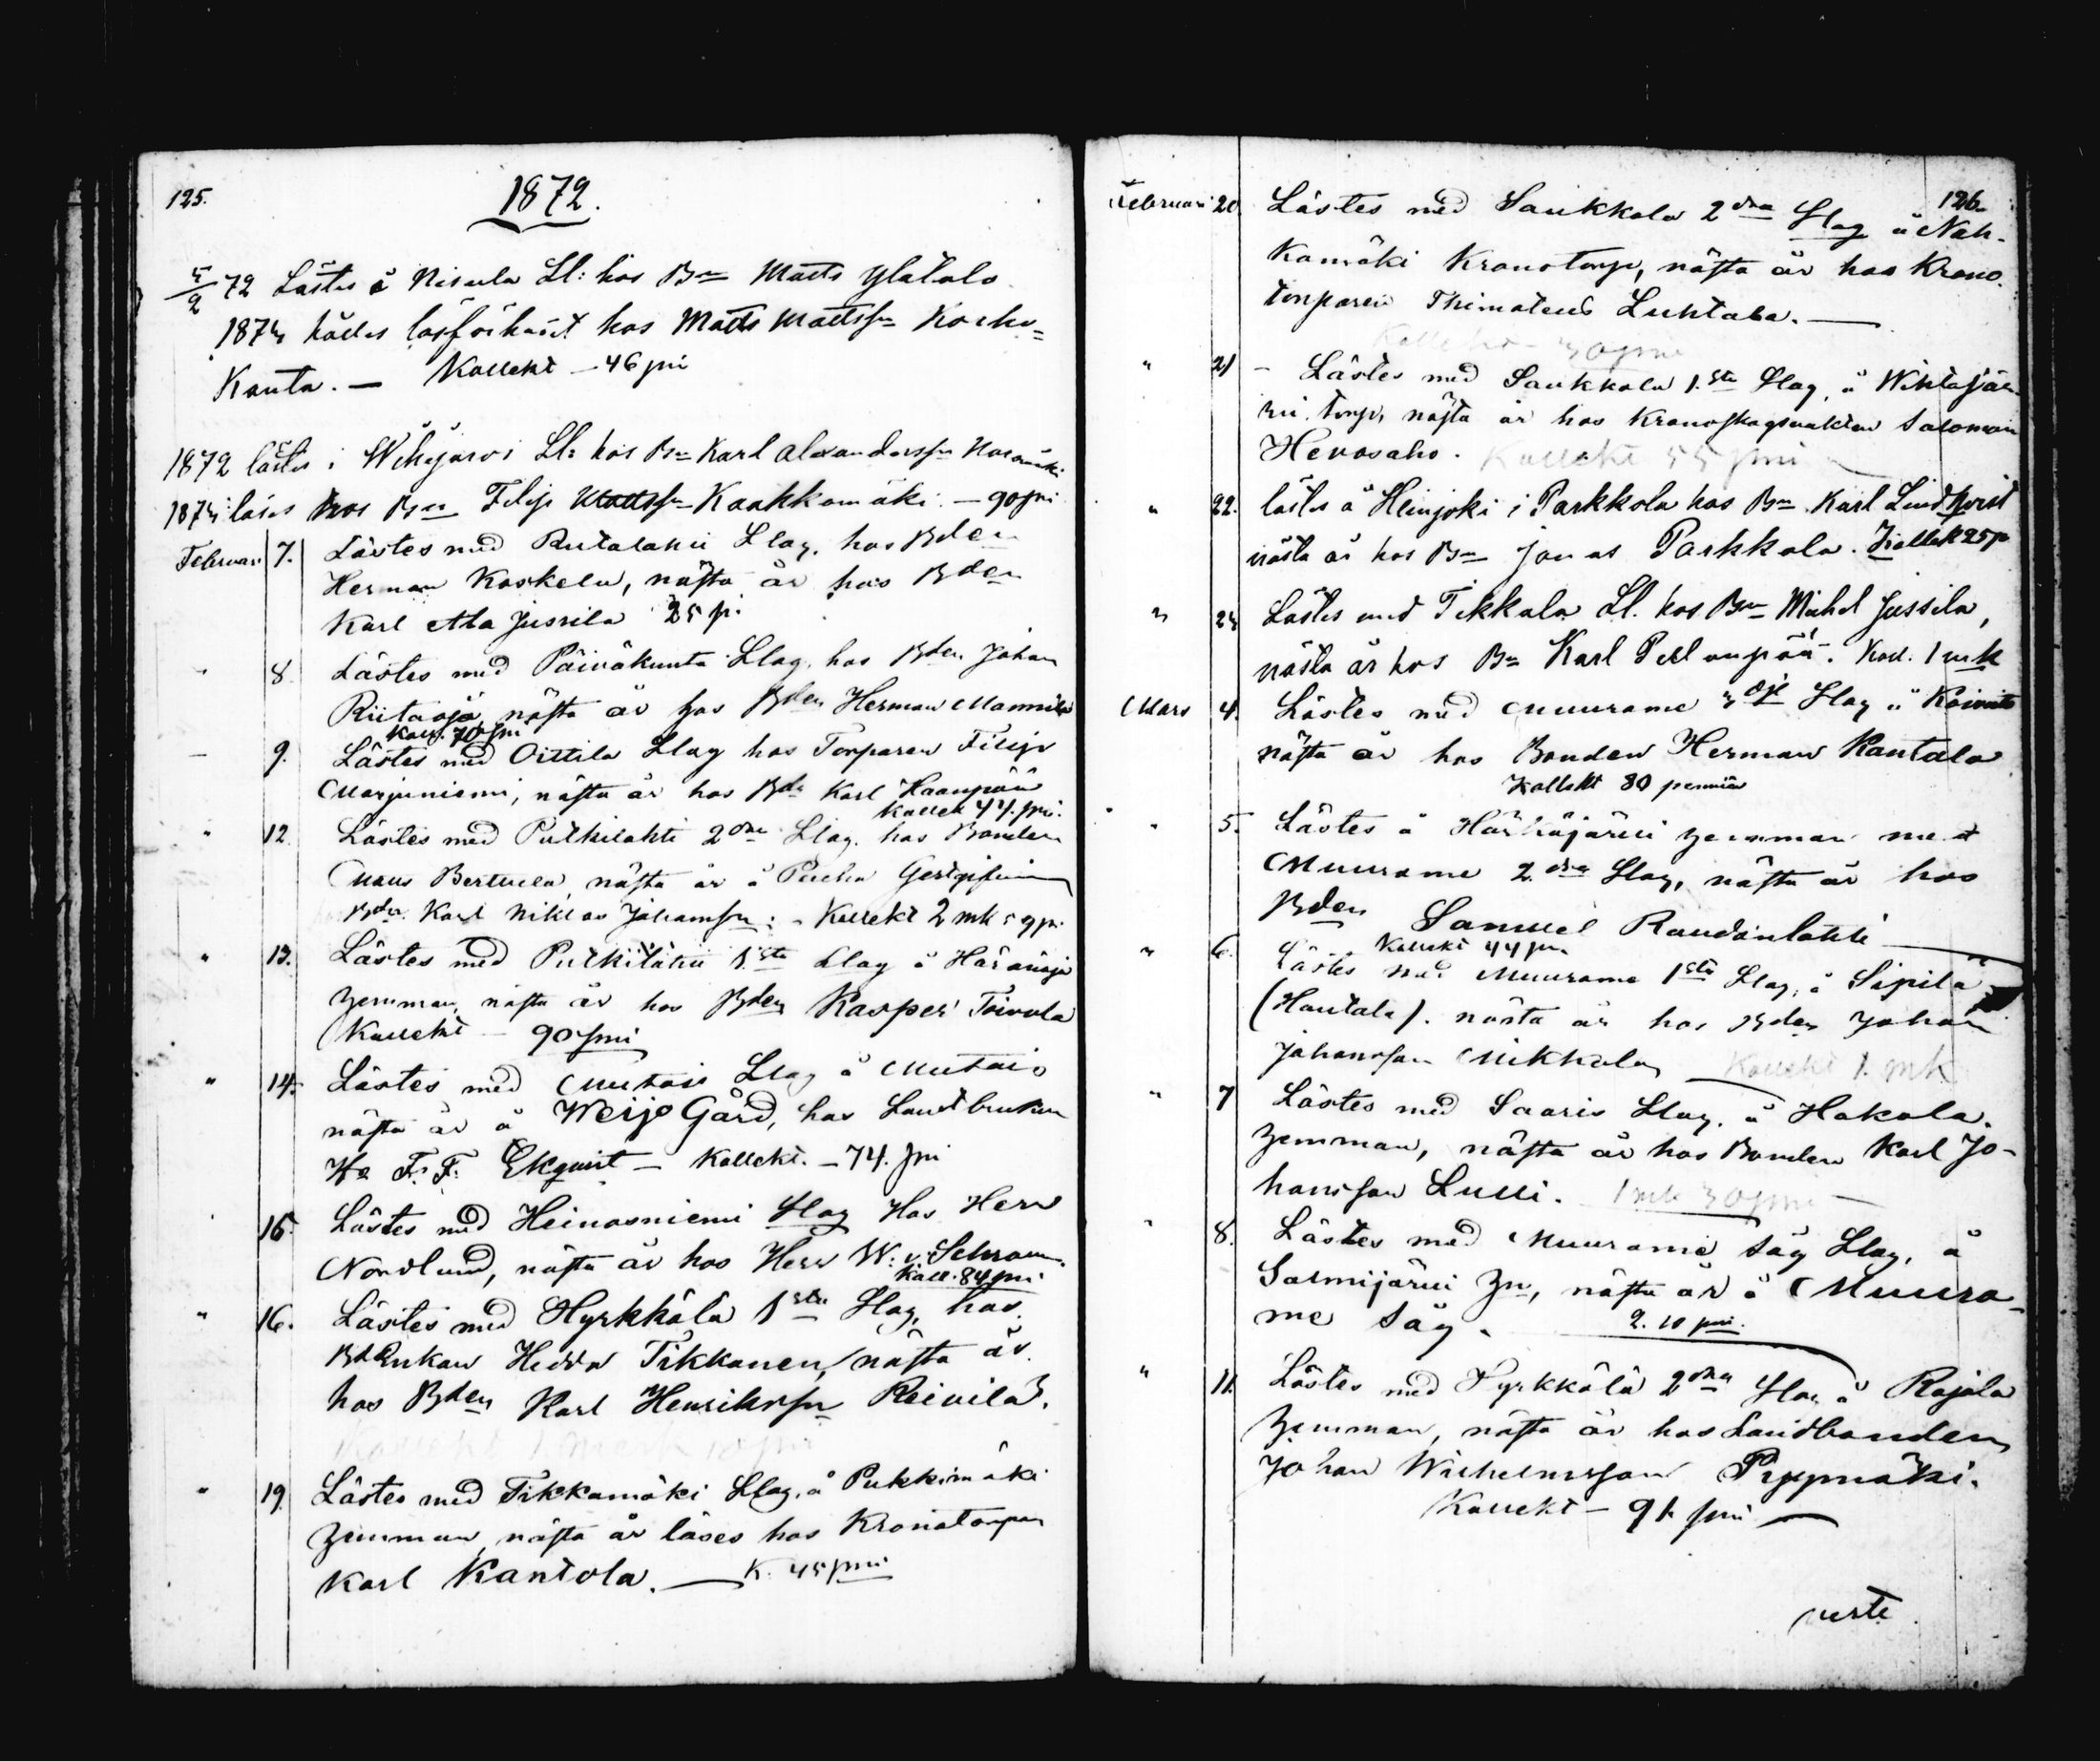 125.
1872.
5/2 72 Lästes å Nisula Ll: hos Bn Matts Ylätalo
1873 hålles läsförhöret hos Matts Mattsson Korho-
Kanta. — Kollekt — 46 pni
1872 lästes i Wihijärvi Ll: hos Bn Karl Alexandersson
1873 läses hos Bn Filip Kaakkomäki — 90 pni
Februari 7. Lästes med Rutalahti Llag. hos Bden
Herman Koskela, nästa år hos Bden
Karl Ala Jussila 25 p.
8 Lästes med Päiväkunta Llag. hos Bden Johan
Riitaoja, nästa år hos Bden Herman Mannila
Koll. 70 pni
9. Lästes med Oittila Llag hos Torparen Filip
Marjuniemi, nästa år hos Bdn Karl Haanpää
Kollek 44. pni.
" 12. Lästes med Putkilahti 2dra Llag. hos Bonden
Maus Bertuela, nästa år å Gestgifveri
Bdn. Karl Niklas Johansson: - Kollekt 2 mk 59 p.
" 13. Lästes med Putkilahti 1sta Llag å
hemman, nästa år hos Bden Kasper Toivola
Kollekt — 90 pni
" 14. Lästes med Mutais Llag å Mutais
nästa år å Weijo Gård, hos Landtbrukaren
Hr F. F. Ekqvist — Kollekt. — 74. pni
15. Lästes med Heinosniemi Llag Hos Herr
Nordlund, nästa år hos Herr W: v. Schrow
Koll. 84 pni
" 16. Lästes med Hyrkkälä 1sta Llag, hos
BdEnkan Hedda Tikkanen, nästa år
hos Bden Karl Henriksson Reivilä.
Kollekt 1 mark 10 pni
" 19. Lästes med Tikkamäki Llag. å Pukkimäki
hemman, nästa år läses hos Kronotorparen
Karl Kantola. — K. 45 pni
126.
Februari 20 Lästes med Saukkola 2dra Llag å Nah-
kamäki Kronotorp, nästa år hos Krono-
torparen Thimoteus Luhtala. —
Kollekt — 30 pni
" 21 - Lästes med Saukkola 1.sta Llag, å Wihtajär-
vi torp, nästa år hos Kronoskogsvaktar Salomon
Hevosaho. Kollekt 55 pni
" 22. lästes å Heinjoki i Parkkola hos Bn Karl Lindkvist
nästa år hos Bn Jonas Parkkola. Kollekt 25 p
" 23 Lästes med Tikkala Ll. hos Bn Mickel Jussila,
nästa år hos Bn Karl Pellonpää. Koll. 1 mk
Mars 4. Lästes med Muurame 3dje Llag å Koivisto
nästa år hos Bonden Herman Rantala
Kollekt 80 penniä
" 5. Lästes å Härkäjärvi hemman med
Muurame 2.dra Llag, nästa år hos
Bden Samuel Raudanlahti
Kollekt 44 pni
" 6. Lästes med Muurame 1sta Llag, å Sipilä
(Hautala). nästa år hos Bden Johan
Johansson Mikkola Kollekt 1. mk
" 7 Lästes med Saaris Llag. å Hakala
hemman, nästa år hos Bonden Karl Jo-
hansson Lulli. 1 mk 30 pni —
" 8. Lästes med Muurame Såg Llag, å
Salmijärvi Hn, nästa år å Muura-
me Såg. 2. 10 pni.
" 11. Lästes med Hyrkkälä 2dra Llag å Rajala
hemman, nästa år hos Landbonden
Johan Wilhelmsson Pyymäki.
Kollekt — 91 pni —
verte